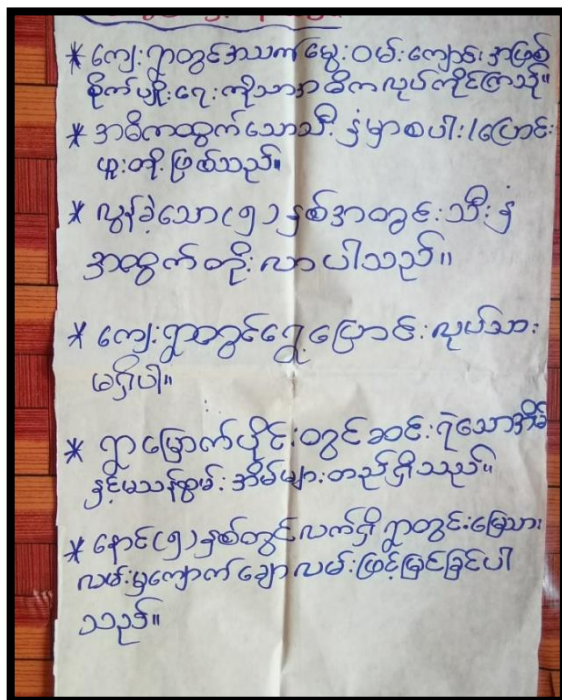 * ကျေးရွာတွင်အသက်မွေးဝမ်းကျောင်းအဖြစ်
စိုက်ပျိုးရေးကိုသာအဓိကလုပ်ကိုင်ကြသည်။
* အဓိကထွက်သောသီးနှံမှာစပါး/ပြောင်း
ဖူးတို့ဖြစ်သည်။
* လွန်ခဲ့သော(၅)နှစ်အတွင်းသီးနှံ
အထွက်တိုးလာပါသည်။
* ကျေးရွာတွင်ရွှေ့ပြောင်းလုပ်သား
မရှိပါ။
* ရွာမြောက်ပိုင်းတွင်ဆင်းရဲသောအိမ်
နှင့်မသန်စွမ်းအိမ်များတည်ရှိသည်။
* နောင်(၅)နှစ်တွင်လက်ရှိရွာတွင်းမြေသား
လမ်းမှကျောက်ချောလမ်းဖြင့်မြင်ခြင်ပါ
သည်။